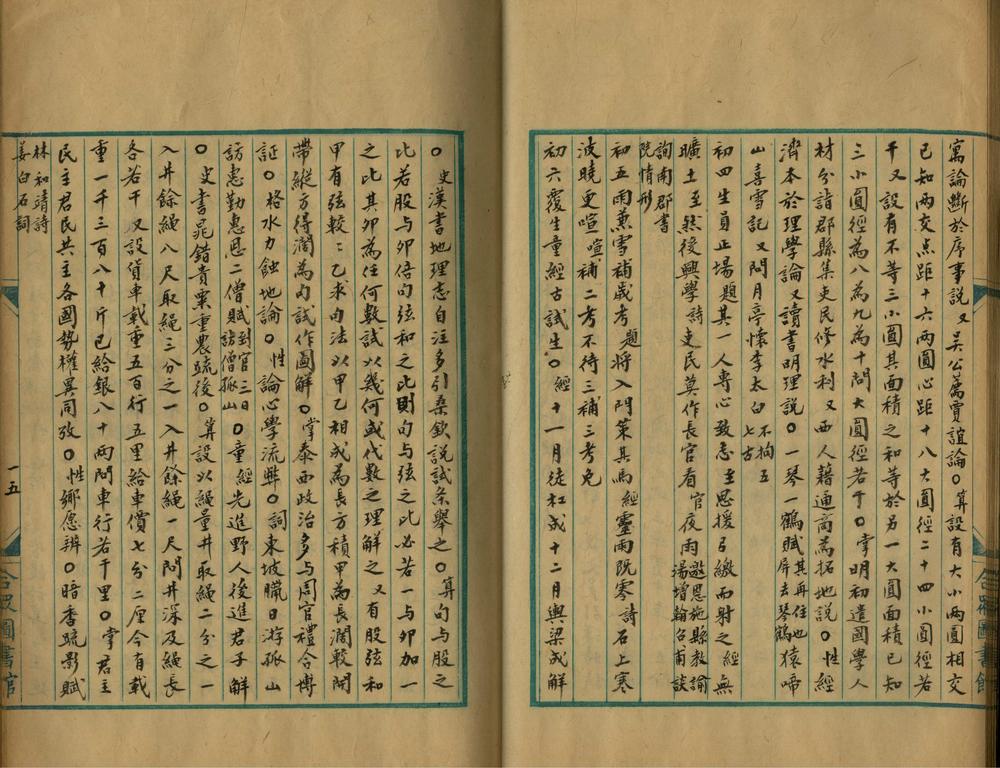 寓論斷於序事說又吳公薦賈誼論〇算設有大小兩圓相交
已知兩交点距十六兩圓心距十八大圓徑二十四小圓徑若
干又設有不等三小圓其面積之和等於另一大圓面積已知
三小圓徑為八為九為十問大圓徑若干〇掌明初遣國學人
材分詣郡縣集吏民修水利又西人藉通商為拓地說〇性經
濟本於理學論又讀書明理說〇一琴一鶴賦其再任也屏去琴鶴猿啼
山喜雪記又問月亭懷李太白不拘五七古
初四生員正場題其一人專心致志至思援弓繳而射之經無
曠土至然後興學詩吏民莫作長官看官夜雨邀恩施縣教諭湯增翰台甫談
詢南郡書院情形
初五雨兼雪補歲考題將入門策其馬經靈雨既零詩石上寒
波曉更喧喧補二考不待三補三考免
初六覆生童經古試生〇經十一月徒杠成十二月輿梁成解
〇史漢書地理志自注多引桑欽說試条舉之〇算句与股之
比若股与卯倍句弦和之比則句与弦之比必若一与卯加一
之比其卯為任何數試以幾何或代數之理解之又有股弦和
甲有弦較〻乙求句法以甲乙相成為長方積甲為長濶較開
帶縱方得濶為句試作圖解〇掌泰西政治多与周官禮合博
証〇格水力蝕地論〇性論心學流弊〇詞東坡臘日游孤山
訪惠勤惠恩二僧賦到官三日訪僧孤山〇童經先進野人後進君子解
〇史書鼂錯貴粟重農疏後〇算設以繩量井取繩二分之一
入井餘繩八尺取繩三分之一入井餘繩一尺問井深及繩長
各若干又設貨車載重五百行五里給車價七分二厘今有載
重一千三百八十斤已給銀八十兩問車行若干里〇掌君主
民主君民共主各國勢權異同攷〇性鄉愿辨〇暗香疏影賦
林和靖詩姜白石詞
一五
合眾圖書館
合眾圖書館